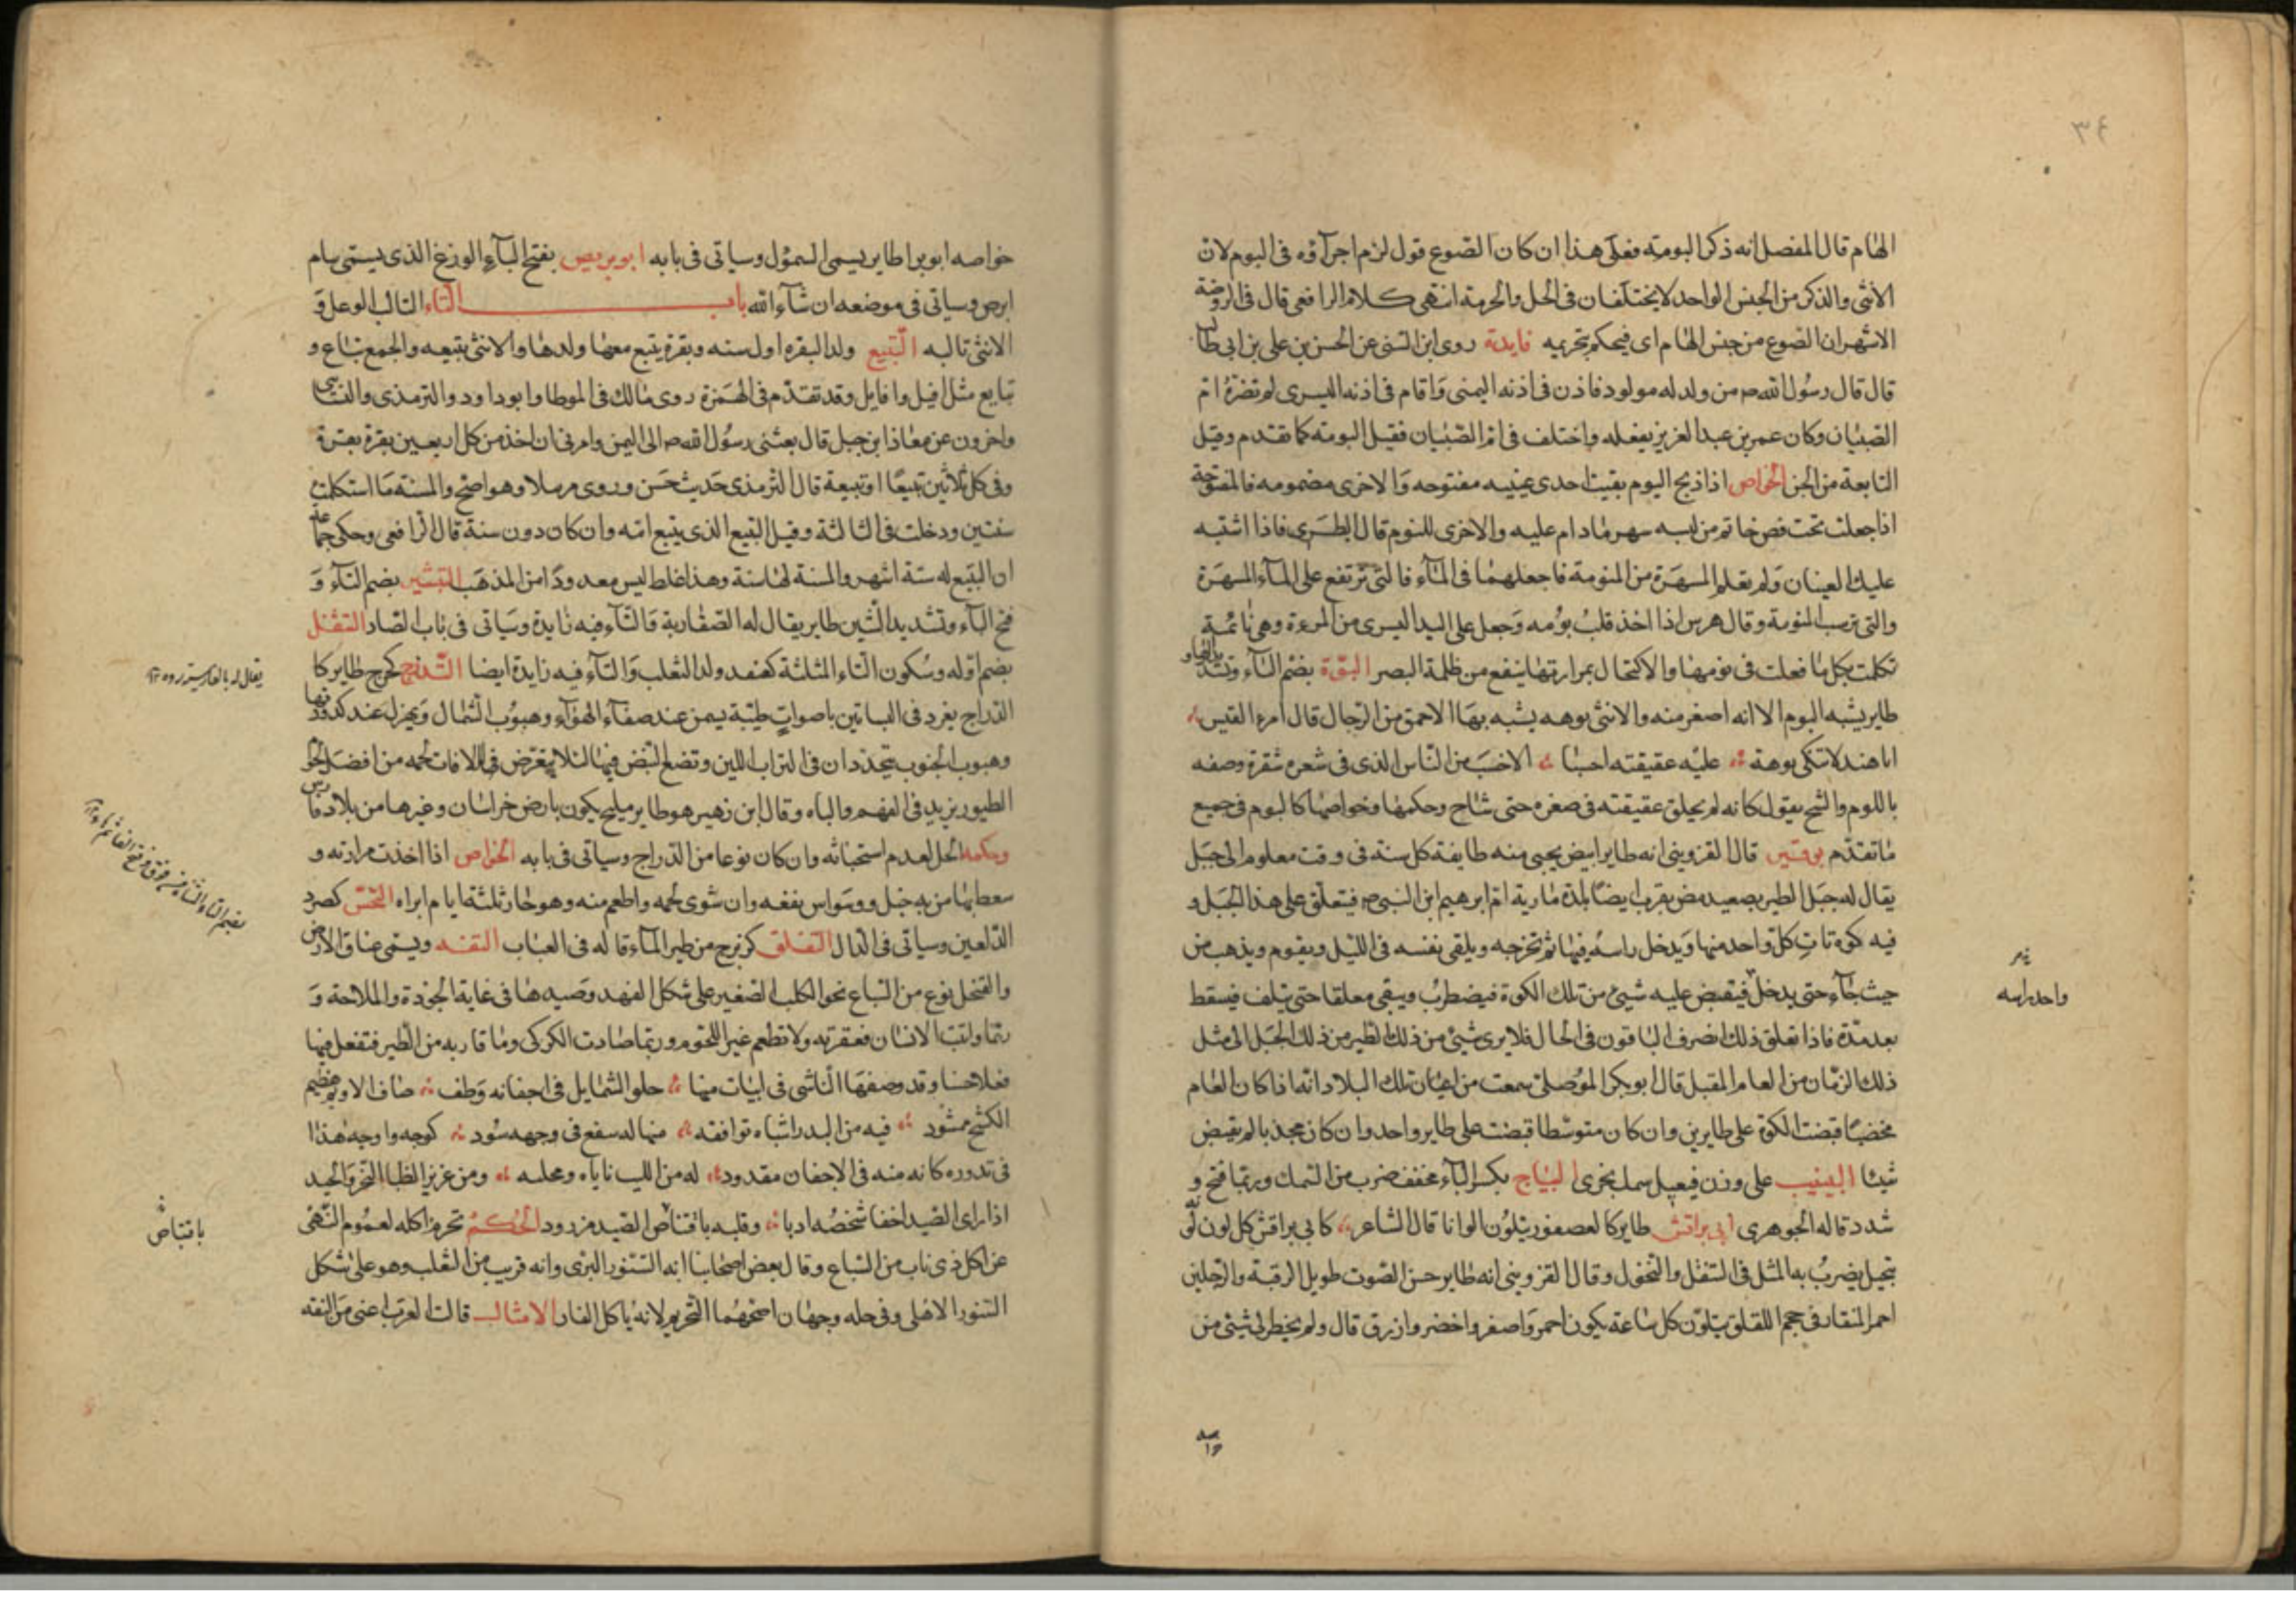 ٣٤
الهام قال المفصل انه ذكر البومة فعلى هذا ان كان الضوع قول لزم اجرآؤه فى البوم لان
الانثى والذكر من الجنس الواحد لا يختلفان فى الحل والحرمة انتهى كلام الرافعى قال فى الروضة
الاشهر ان الضوع من جنس الهام اى فيحكم بتحريمه فايدة روى ابن السنى عن الحسن بن على بن ابى طالب
قال قال رسول الله ص من ولد له مولود فاذن فى اذنه اليمنى واقام فى اذنه اليسرى لم تضره ام
الصبيان وكان عمر بن عبد العزيز يفعله واختلف فى ام الصبيان فقيل البومة كما تقدم وقيل
التابعة من الجن الخواص اذا ذبح البوم بقيت احدى عينيه مفتوحه والاخرى مضمومه فالمفتوحة
اذا جعلت تحت فص خاتم من لبسه سهر مادام عليه والاخرى للنوم قال الطبرى فاذا اشتبه
عليك العينان ولم تعلم المسهرة من المنومة فاجعلهما فى المآء فالتى ترتفع على المآء المسهرة
والتى ترسب المنومة وقال هرمس اذا اخذ قلب بومه وجعل على اليد اليسرى من المرءة وهى نائمة
تكلمت بكل ما فعلت فى نومها والاكتحال بمرارتها ينفع من ظلمة البصر البوة بضم البآء وتشد
طاير يشبه البوم الا انه اصغر منه والانثى بوهه يشبه بها الاحمق من الرجال قال امرء القيس
اياهند لا تنكى بوهة عليه عقيقته احبا الاحب من الناس الذى فى شعره شقرة وصفه
باللوم والشح يقول كانه لم يحلق عقيقته فى صغره حتى شاخ وحكمها وخواصها كالبوم فى جميع
ما تقدم بوقير قال القزوينى انه طاير ابيض يجيئ منه طايفة كل سنة فى وقت معلوم الى جبل
يقال له جبل الطير بصعيد مصر بقرب انصنا بلدة مارية ام ابرهيم ابن النبى ص فيتعلق على هذا الجبل و
فيه كوة تات كل واحد منها ويدخل راسه فيها ثم تخرجه ويلقى نفسه فى النيل ويقوم ويذهب من
حيث جآء حتى يدخل فيقبض عليه شيئ من تلك الكوة فيضطرب ويبقى معلقا حتى يتلف فيسقط
بعد مدة فاذا تعلق ذلك انصرف الباقون فى الحال فلا يرى شيئ من ذلك الطير من ذلك الجبل الى مثل
ذلك الزمان من العام المقبل قال ابو بكر الموصلى سمعت من اعيان تلك البلاد انه اذا كان العام
مخصبا قبضت الكوة على طايرين وان كان متوسطا قبضت على طاير واحد وان كان مجدبا لم يقبض
شيئا البينيب على وزن فيعيل سمك بحرى البياح بكسر البآء مخفف ضرب من السمك وربما فتح و
شدد قاله الجوهرى ابى براقش طاير كالعصفور يتلون الوانا قال الشاعر كابى براقش كل لون لونه
يتجيل يضرب به المثل فى التنقل والتحول وقال القزوينى انه طاير حسن الصوت طويل الرقبة والرجلين
احمر المنقار فى حجم اللقلق يتلون كل ساعة يكون احمر واصفر واخضر وازرق قال ولم يخطر لى شيئ من
واحد راسه
خواصه ابو برا طاير يسمى السمؤل وسياتى فى بابه ابو بريص بفتح البآء الوزغ الذى يسمى سام
ابرص وسياتى فى موضعه ان شآء الله باب التاء التالب الوعل و
الانثى تالبه التبيع ولد البقره اول سنه وبقرة يتبع معها ولدها والانثى تبيعه والجمع تباع و
تبايع مثل افيل وافايل وقد تقدم فى الهمزة روى مالك فى الموطا وابو داود والترمذى والنسائى
واخرون عن معاذ ابن جبل قال بعثنى رسول الله ص الى اليمن وامرنى ان اخذ من كل اربعين بقرة بقرة
وفى كل ثلاثين تبيعا او تبيعة قال الترمذى حديث حسن وروى مرسلا وهو اصح والمسنة ما استكملت
سنتين ودخلت فى الثالثة وقيل التبيع الذى يتبع امه وان كان دون سنة قال الرافعى وحكى جماعة
ان التبيع له ستة اشهر والمسنة لها سنة وهذا غلط ليس معدودا من المذهب التبشر بضم التآء و
فتح البآء وتشديد الشين طاير يقال له الصفارية والتآء فيه زايدة وسياتى فى باب الصاد التتفل
بضم اوله وسكون التاء المثلثة كقنفد ولد الثعلب والتآء فيه زايدة ايضا التدرج كحرج طاير كا
الدراج يغرد فى البساتين باصوات طيبة يسمن عند صفآء الهوآء وهبوب الشمال ويهزل عند كدورتها
وهبوب الجنوب يتخذ دارا فى التراب اللين وتضع البيض فيها لئلا يتعرض للافات لحمه من افضل لحو
الطيور يزيد فى الفهم والباه وقال ابن زهير هو طاير مليح يكون بارض خراسان وغيرها من بلاد فارس
وحكمه الحل لعدم استخباثه وان كان نوعا من الدراج وسياتى فى بابه الخواص اذا اخذت مرارته و
سعط بها من به خبل ووسواس نفعه وان شوى لحمه واطعم منه وهو حار ثلثة ايام ابراه التخس كصرد
الدلفين وسياتى فى الدال التفلق كزبرج من طير المآء قاله فى العباب التفه ويسمى عناق الارض
والقنجل نوع من السباع نحو الكلب الصغير على شكل الفهد وصيدها فى غاية الجودة والملاحة و
ربما واثبت الانسان فعقرته ولا تطعم غير اللحوم وربما صادت الكركى وما قاربه من الطير فتفعل فيها
فعلا حسنا وقد وصفها الناشى فى ابيات منها حلو الشمايل فى اجفانه وطف صاف الاديم هضيم
الكشح ممشود فيه من البدر اشباه توافقه منها له سفع فى وجهه سود كوجه واوجه هذا
فى تدوره كانه منه فى الاجفان مقدود له من الليث ناباه ومخلبه ومن غرير الظبا النحر والجيد
اذا راى الصيد اخفا شخصه ادبا وقلبه باقتناص الصيد مزدود الحكم تحرم اكله لعموم النهى
عن اكل ذى ناب من السباع وقال بعض اصحابنا انه السنور البرى وانه قريب من الثعلب وهو على شكل
السنور الاهلى وفى حله وجهان اصحهما التحريم لانه ياكل الفار الامثال قالت العرب اغنى من التفه
باقتناص